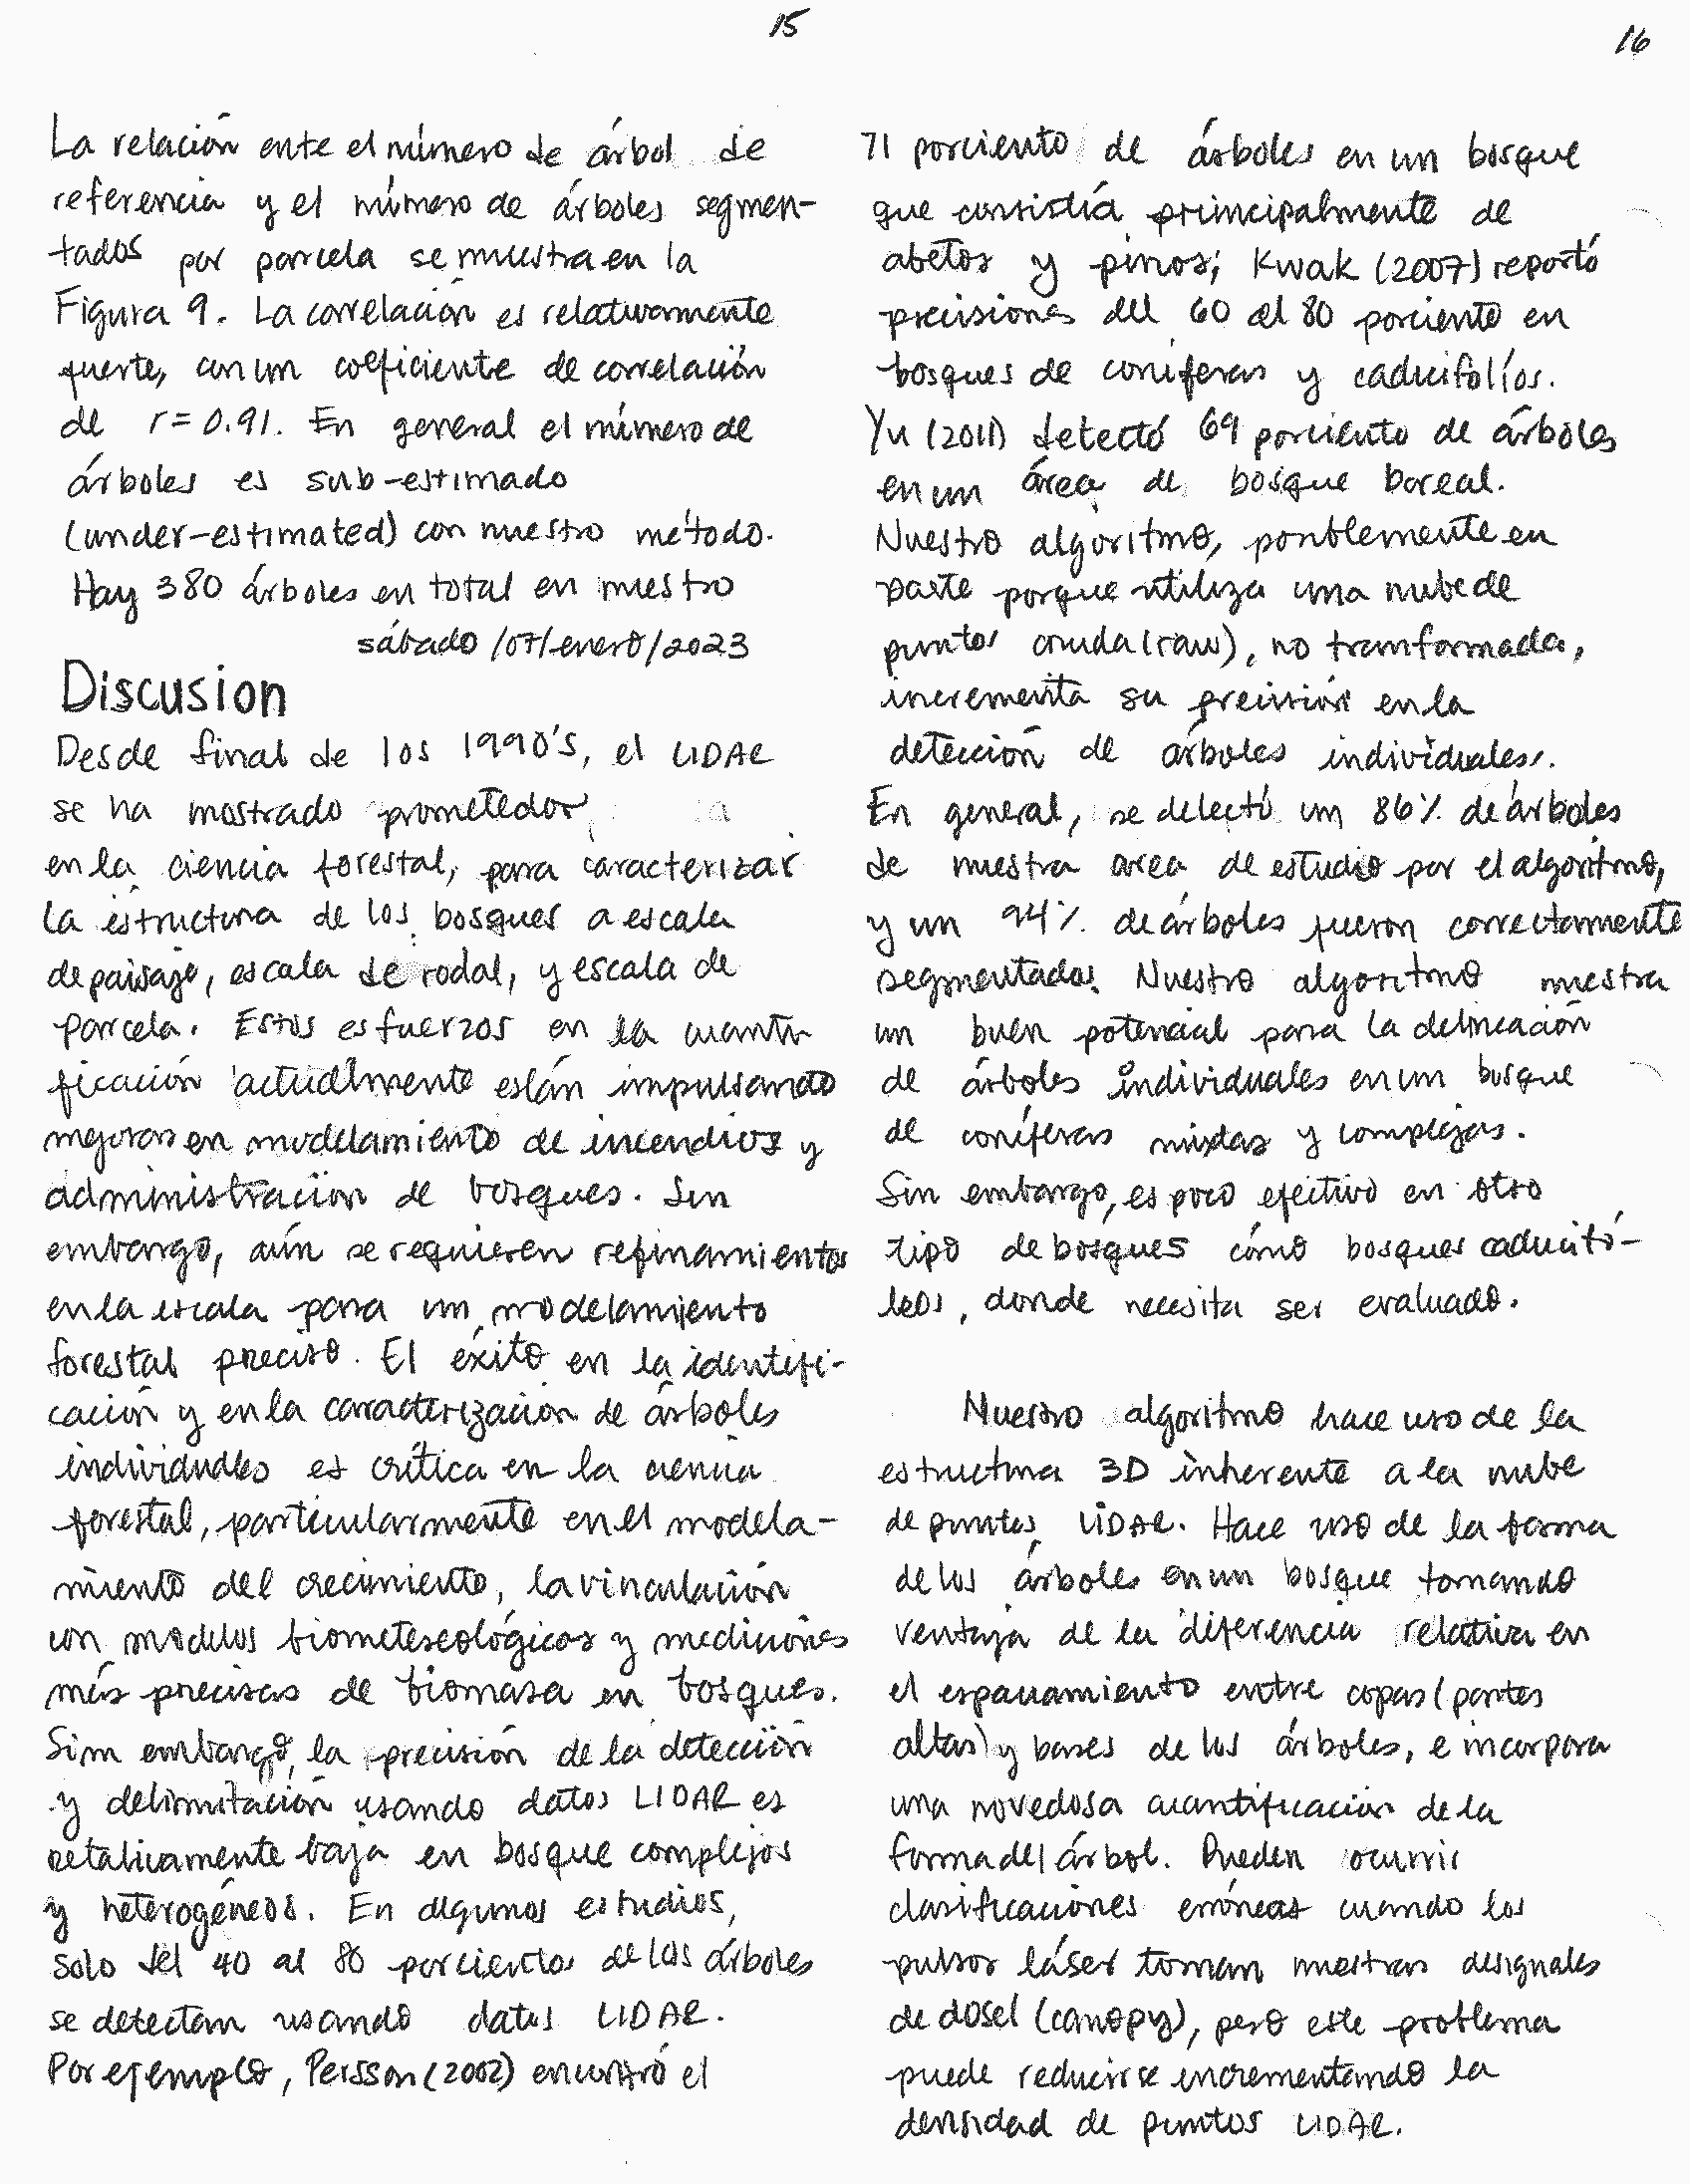 15
La relación ente el número de árbol de
referencia y el número de árboles segmen-
tados por parcela se muestra en la
Figura 9. La correlación es relativamente
fuerte, con un coeficiente de correlación
de r = 0.91. En general el número de
árboles es sub-estimado
(under-estimated) con nuestro método.
Hay 380 árboles en total en nuestro
sábado /07/enero/2023
Discusion
Desde final de los 1990's, el LIDAR
se ha mostrado prometedor
en la ciencia forestal, para caracterizar
la estructura de los bosques a escala
de paisaje, escala de rodal, y escala de
parcela. Estos esfuerzos en la cuanti
ficación actualmente están impulsando
mejoras en modelamiento de incendios y
administración de bosques. Sin
embargo, aún se requieren refinamientos
en la escala para un modelamiento
forestal preciso. El éxito en la identifi-
cación y en la caracterización de árboles
individuales es crítica en la ciencia
forestal, particularmente en el modela-
miento del crecimiento, la vinculación
con modelos biometeseológicos y mediciones
más precisas de biomasa en bosques.
Sim embargo, la precisión de la detección
y delimitación usando datos LIDAR es
retalivamente baja en bosque complejos
y heterogéneos. En algunos estudios,
solo del 40 al 80 porcientos de los árboles
se detectan usando datos LIDAR.
Por ejemplo, Persson (2002) encontró el
16
71 porciento de árboles en un bosque
que consistía principalmente de
abetos y pinos; Kwak (2007) reportó
precisiones del 60 al 80 porciento en
bosques de coníferas y caducifolíos.
Yu (2011) detectó 69 porciento de árboles
en un área de bosque boreal.
Nuestro algoritmo, posiblemente en
parte porque utiliza una nube de
puntos cruda (raw), no transformada,
incrementa su precisión en la
detección de árboles individuales.
En general, se detectó un 86% de árboles
de nuestra area de estudio por el algoritmo,
y un 94% de árboles fueron correctamente
segmentados. Nuestro algoritmo muestra
un buen potencial para la delineación
de árboles individuales en un bosque
de coníferas mixtas y complejas.
Sin embargo, es poco efectivo en otro
tipo de bosques cómo bosques caducifó-
leos, donde necesita ser evaluado.
Nuestro algoritmo hace uso de la
estructura 3D inherente a la nube
de puntos LIDAR. Hace uso de la forma
de los árboles en un bosque tomando
ventaja de la diferencia relativa en
el espaciamiento entre copas (partes
altas) y bases de los árboles, e incorpora
una novedosa cuantificación de la
forma del árbol. Pueden ocurrir
clasificaciones erróneas cuando los
pulsos láser toman muestras desiguales
de dosel (canopy), pero este problema
puede reducirse incrementando la
densidad de puntos LIDAR.